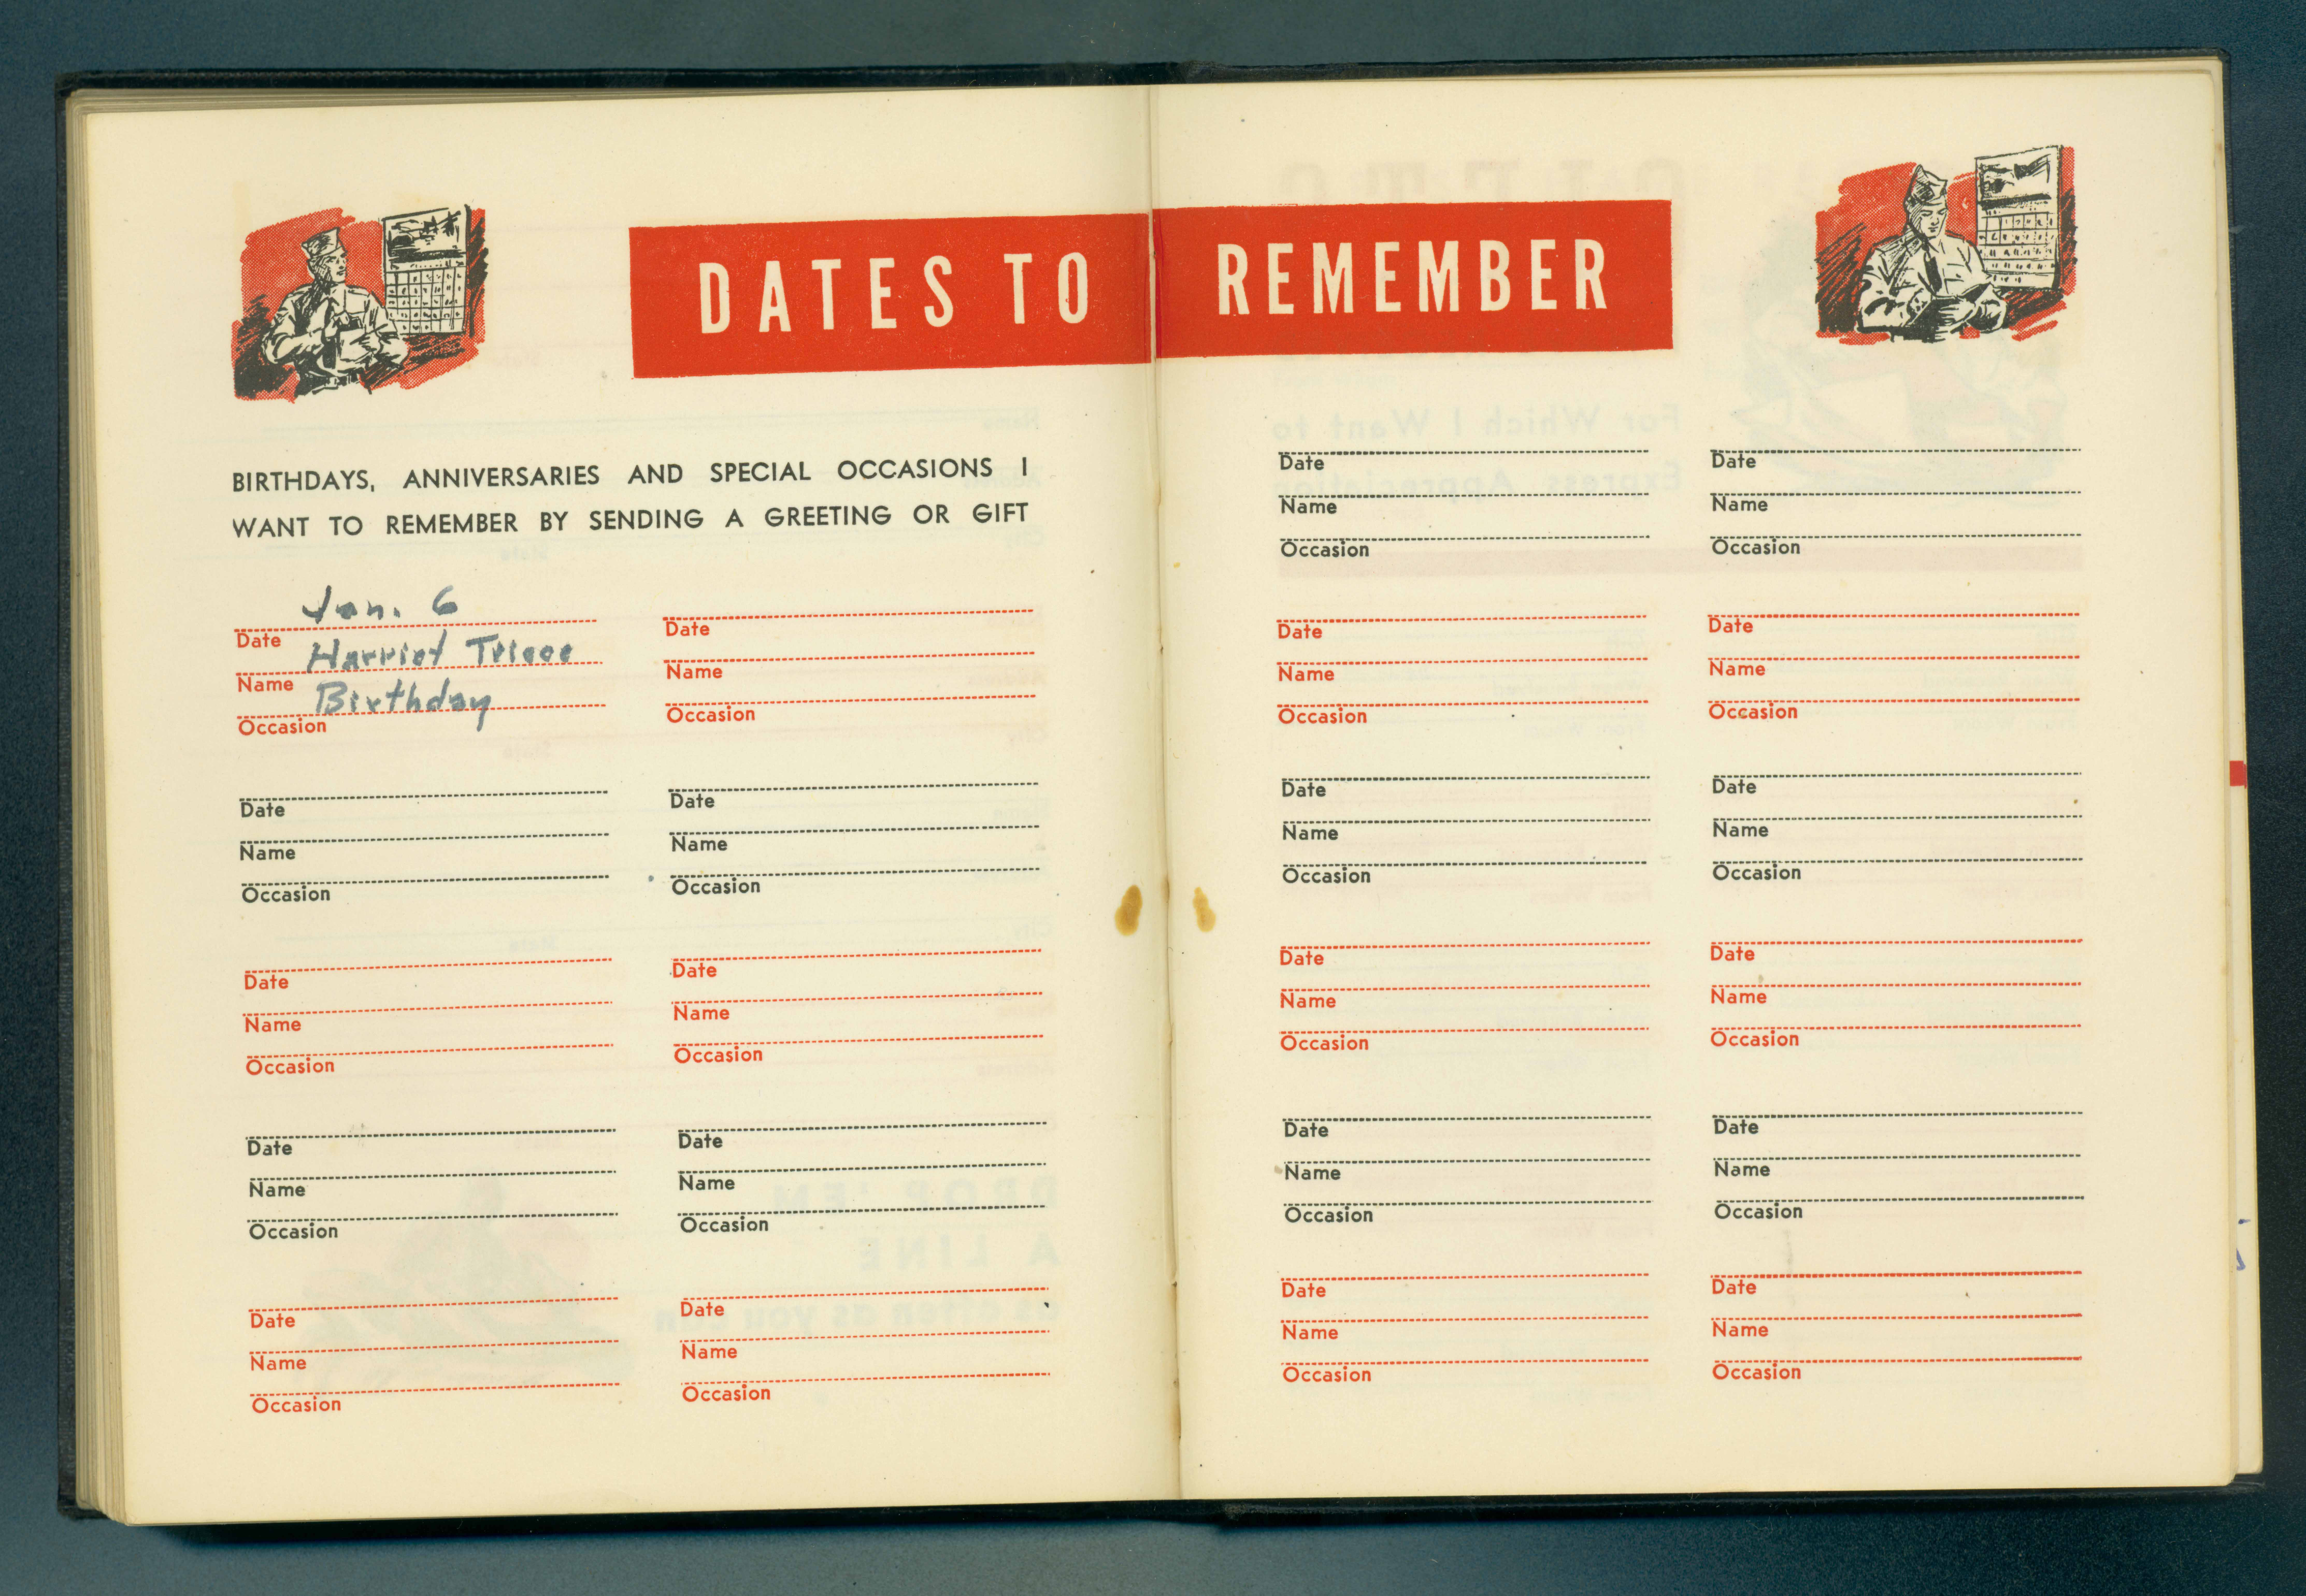 DATES TO REMEMBER
BIRTHDAYS, ANNIVERSARIES AND SPECIAL OCCASIONS I
WANT TO REMEMBER BY SENDING A GREETING OR GIFT
Jan. 6
Date
Harriet
Name
Birthday
Occasion
Date
Name
Occasion
Date
Name
Occasion
Date
Name
Occasion
Date
Name
Occasion
Date
Name
Occasion
Date
Name
Occasion
Date
Name
Occasion
Date
Name
Occasion
Date
Name
Occasion
Date
Name
Occasion
Date
Name
Occasion
Date
Name
Occasion
Date
Name
Occasion
Date
Name
Occasion
Date
Name
Occasion
Date
Name
Occasion
Date
Name
Occasion
Date
Name
Occasion
Date
Name
Occasion
Date
Name
Occasion
Date
Name
Occasion